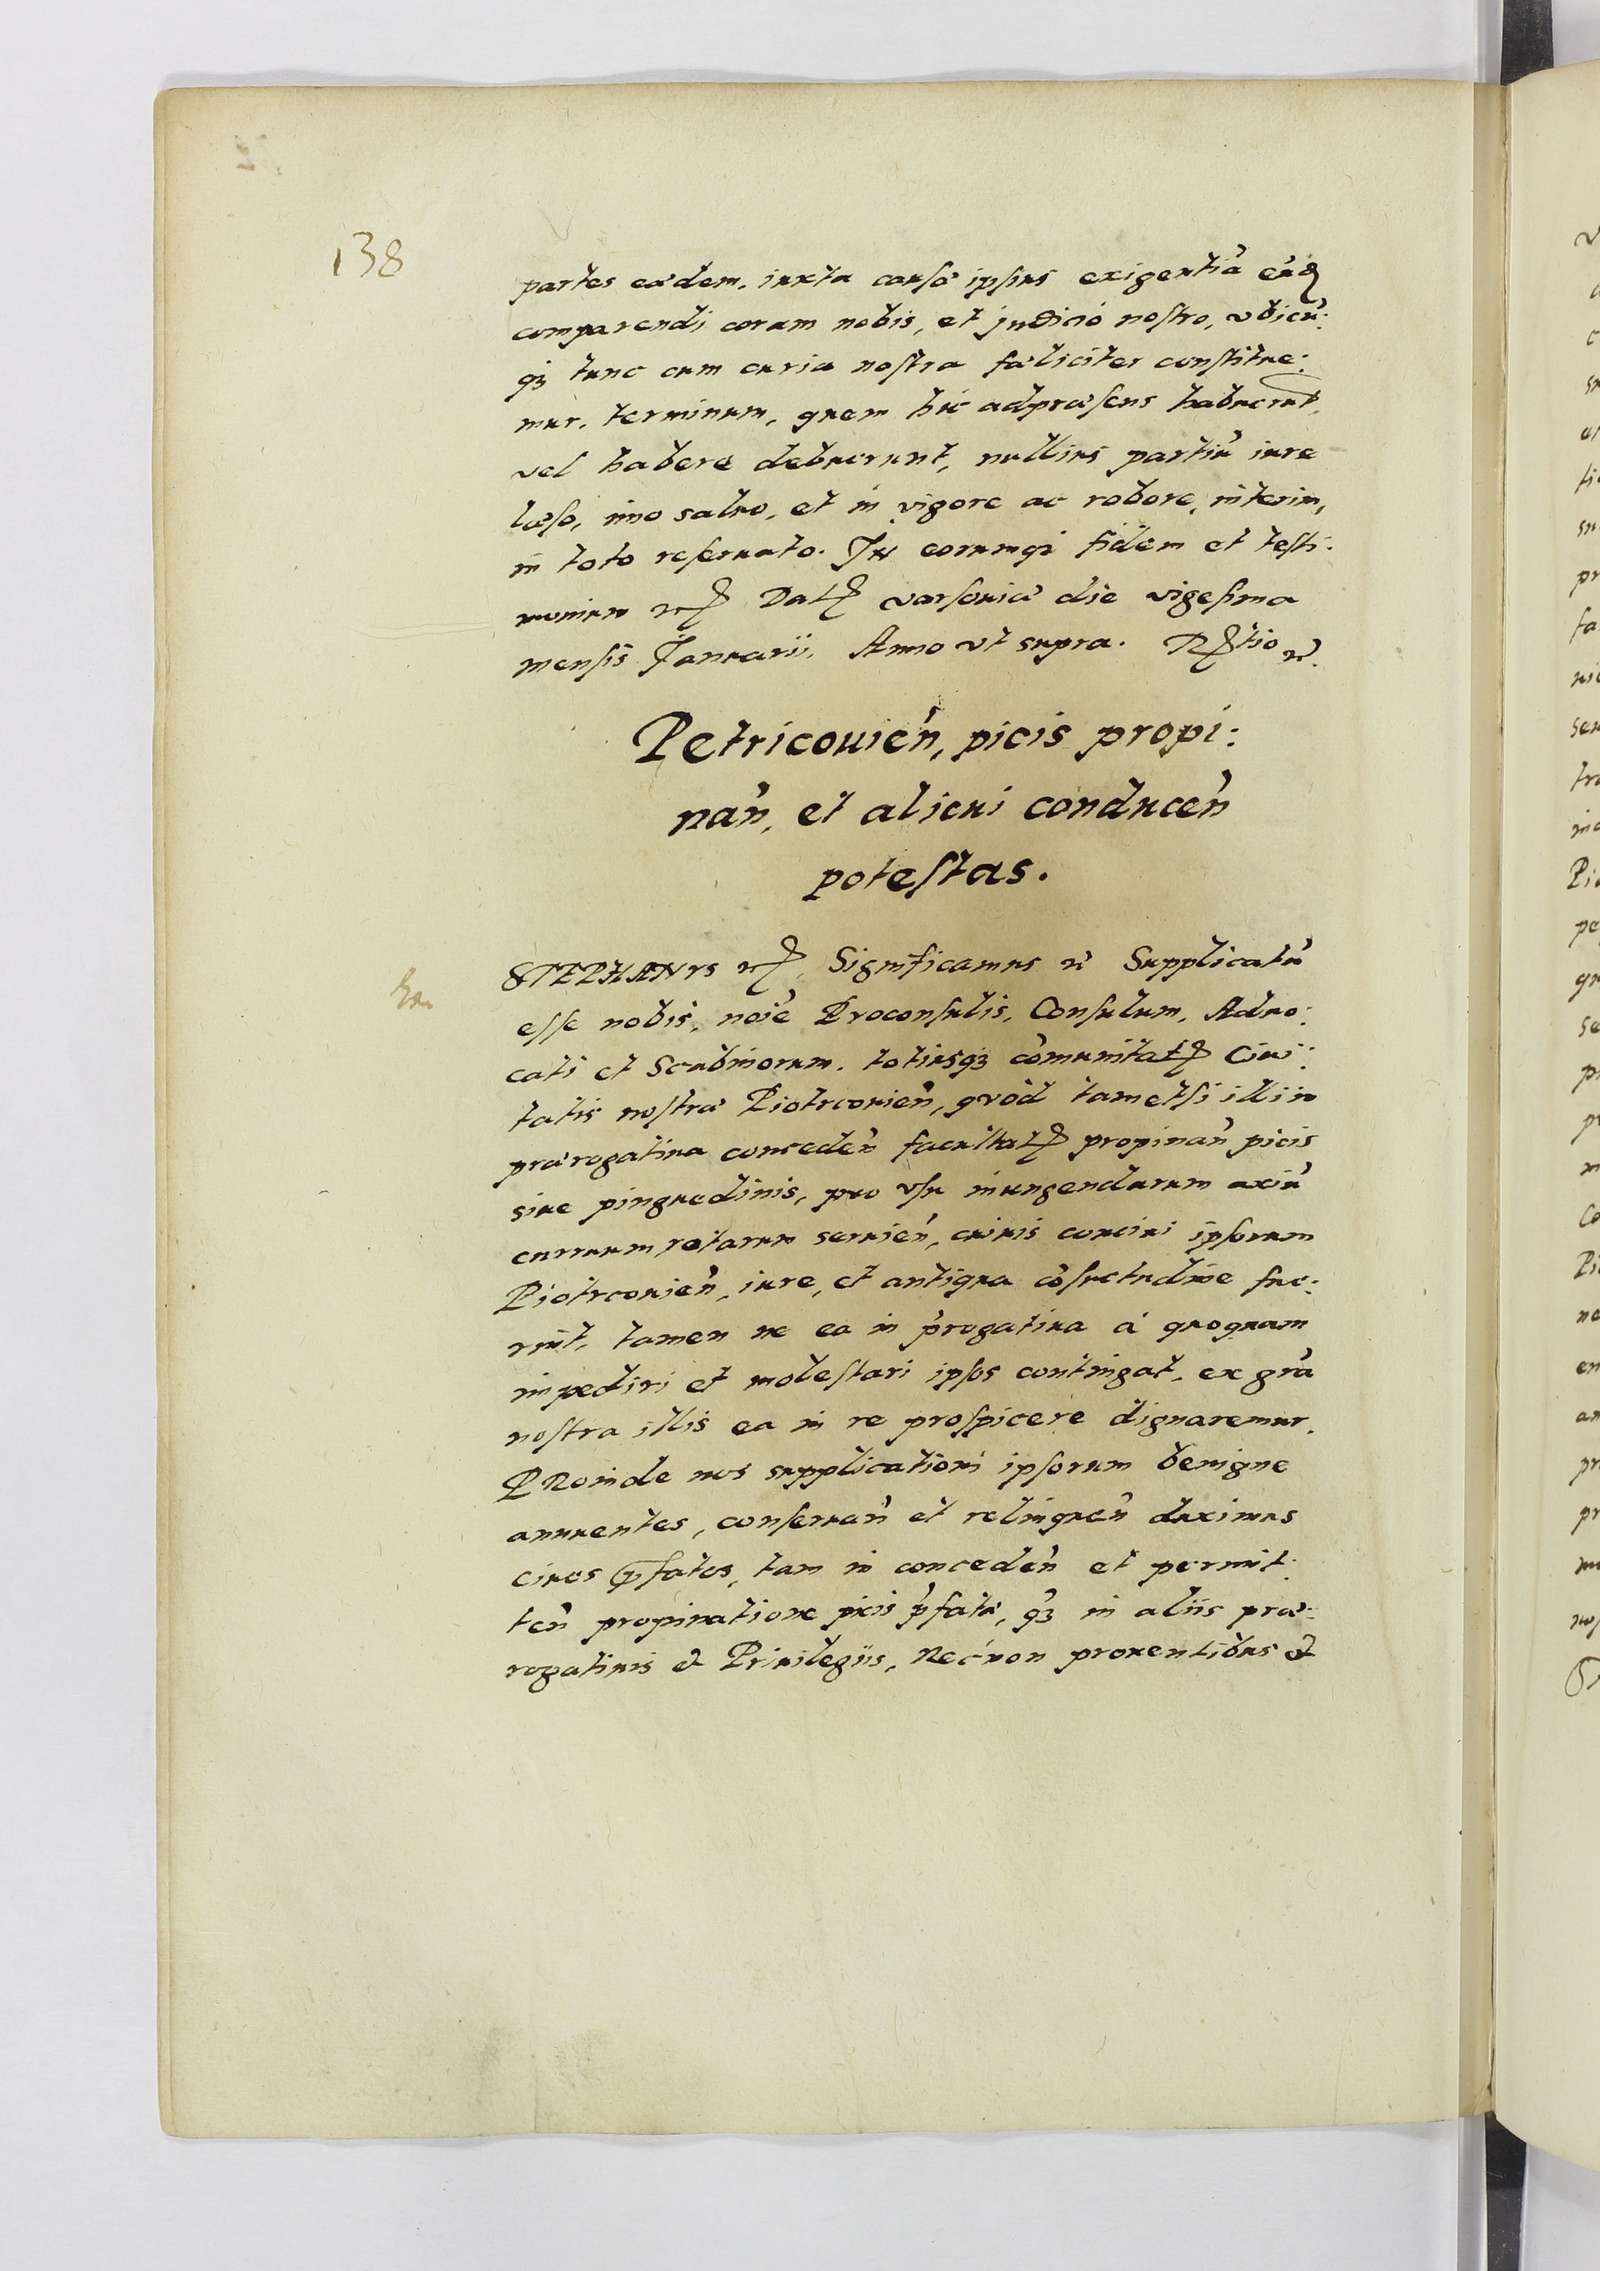 138
partes eædem, iuxta causæ ipsius exigentiã
comparendi coram nobis, et judicio nostro, vbicũ:
qȝ tunc cum curia nostra fæliciter constitue:
mur, terminum, quem hic adpræsens habuerunt,
vel habere debuerunt, nullius partiũ iure
læso, imo saluo, et in vigore ac robore, interim,
in toto reseruato. In eorumqȝ fidem et testi:
monium Datꝭ varsouiæ die vigesima
mensis Januarii, Anno vt supra.
Petricouień, picis propi:
nań, et alicui conduceń
potestas.
STEPHANVS Significamus Supplicatũ
esse nobis, noïe Proconsulis, Consulum, Aduo:
cati et Scabinorum, totiusqȝ cõmunitatꝭ Ciui:
tatis nostræ Piotrcouień, quòd tametsi illi in
prærogatiua concedeń facultatꝭ propinań picis
siue pinguedinis, pro vsu inungendarum axiũ
curruum rotarum seruień, ciuiis conciui ipsorum
Piotrcouień, iure, et antiqua cõsuetudine fue:
rint, tamen ne ea in p̃rogatiua à quoquam
impediri et molestari ipsos contingat, ex grã
nostra illis ea in re prospicere dignaremur.
PRoinde nos supplicationi ipsorum benigne
annuentes, conseruań et relinqueń duximus
ciues p̃fatos, tam in concedeń et permit:
teń propinatione picis p̃fatæ, qȝ in aliis præ:
rogatiuis et Priuilegiis, Nec non prouentibus et